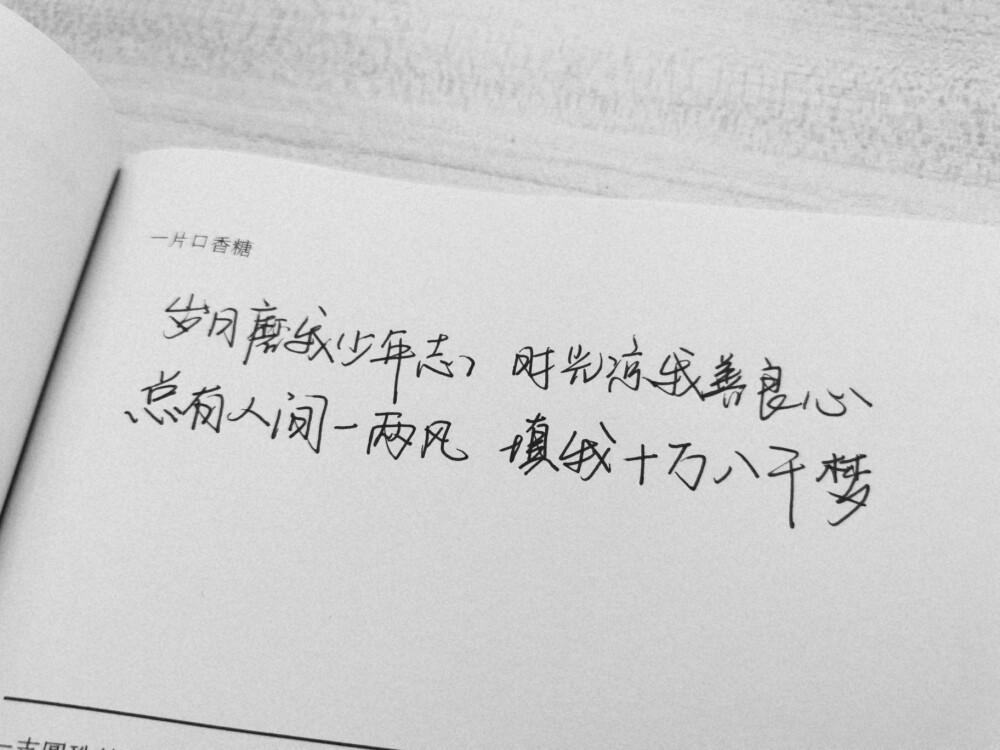 一片口香糖
岁月磨我少年志, 时光凉我善良心
总有人间一两风 填我十万八千梦